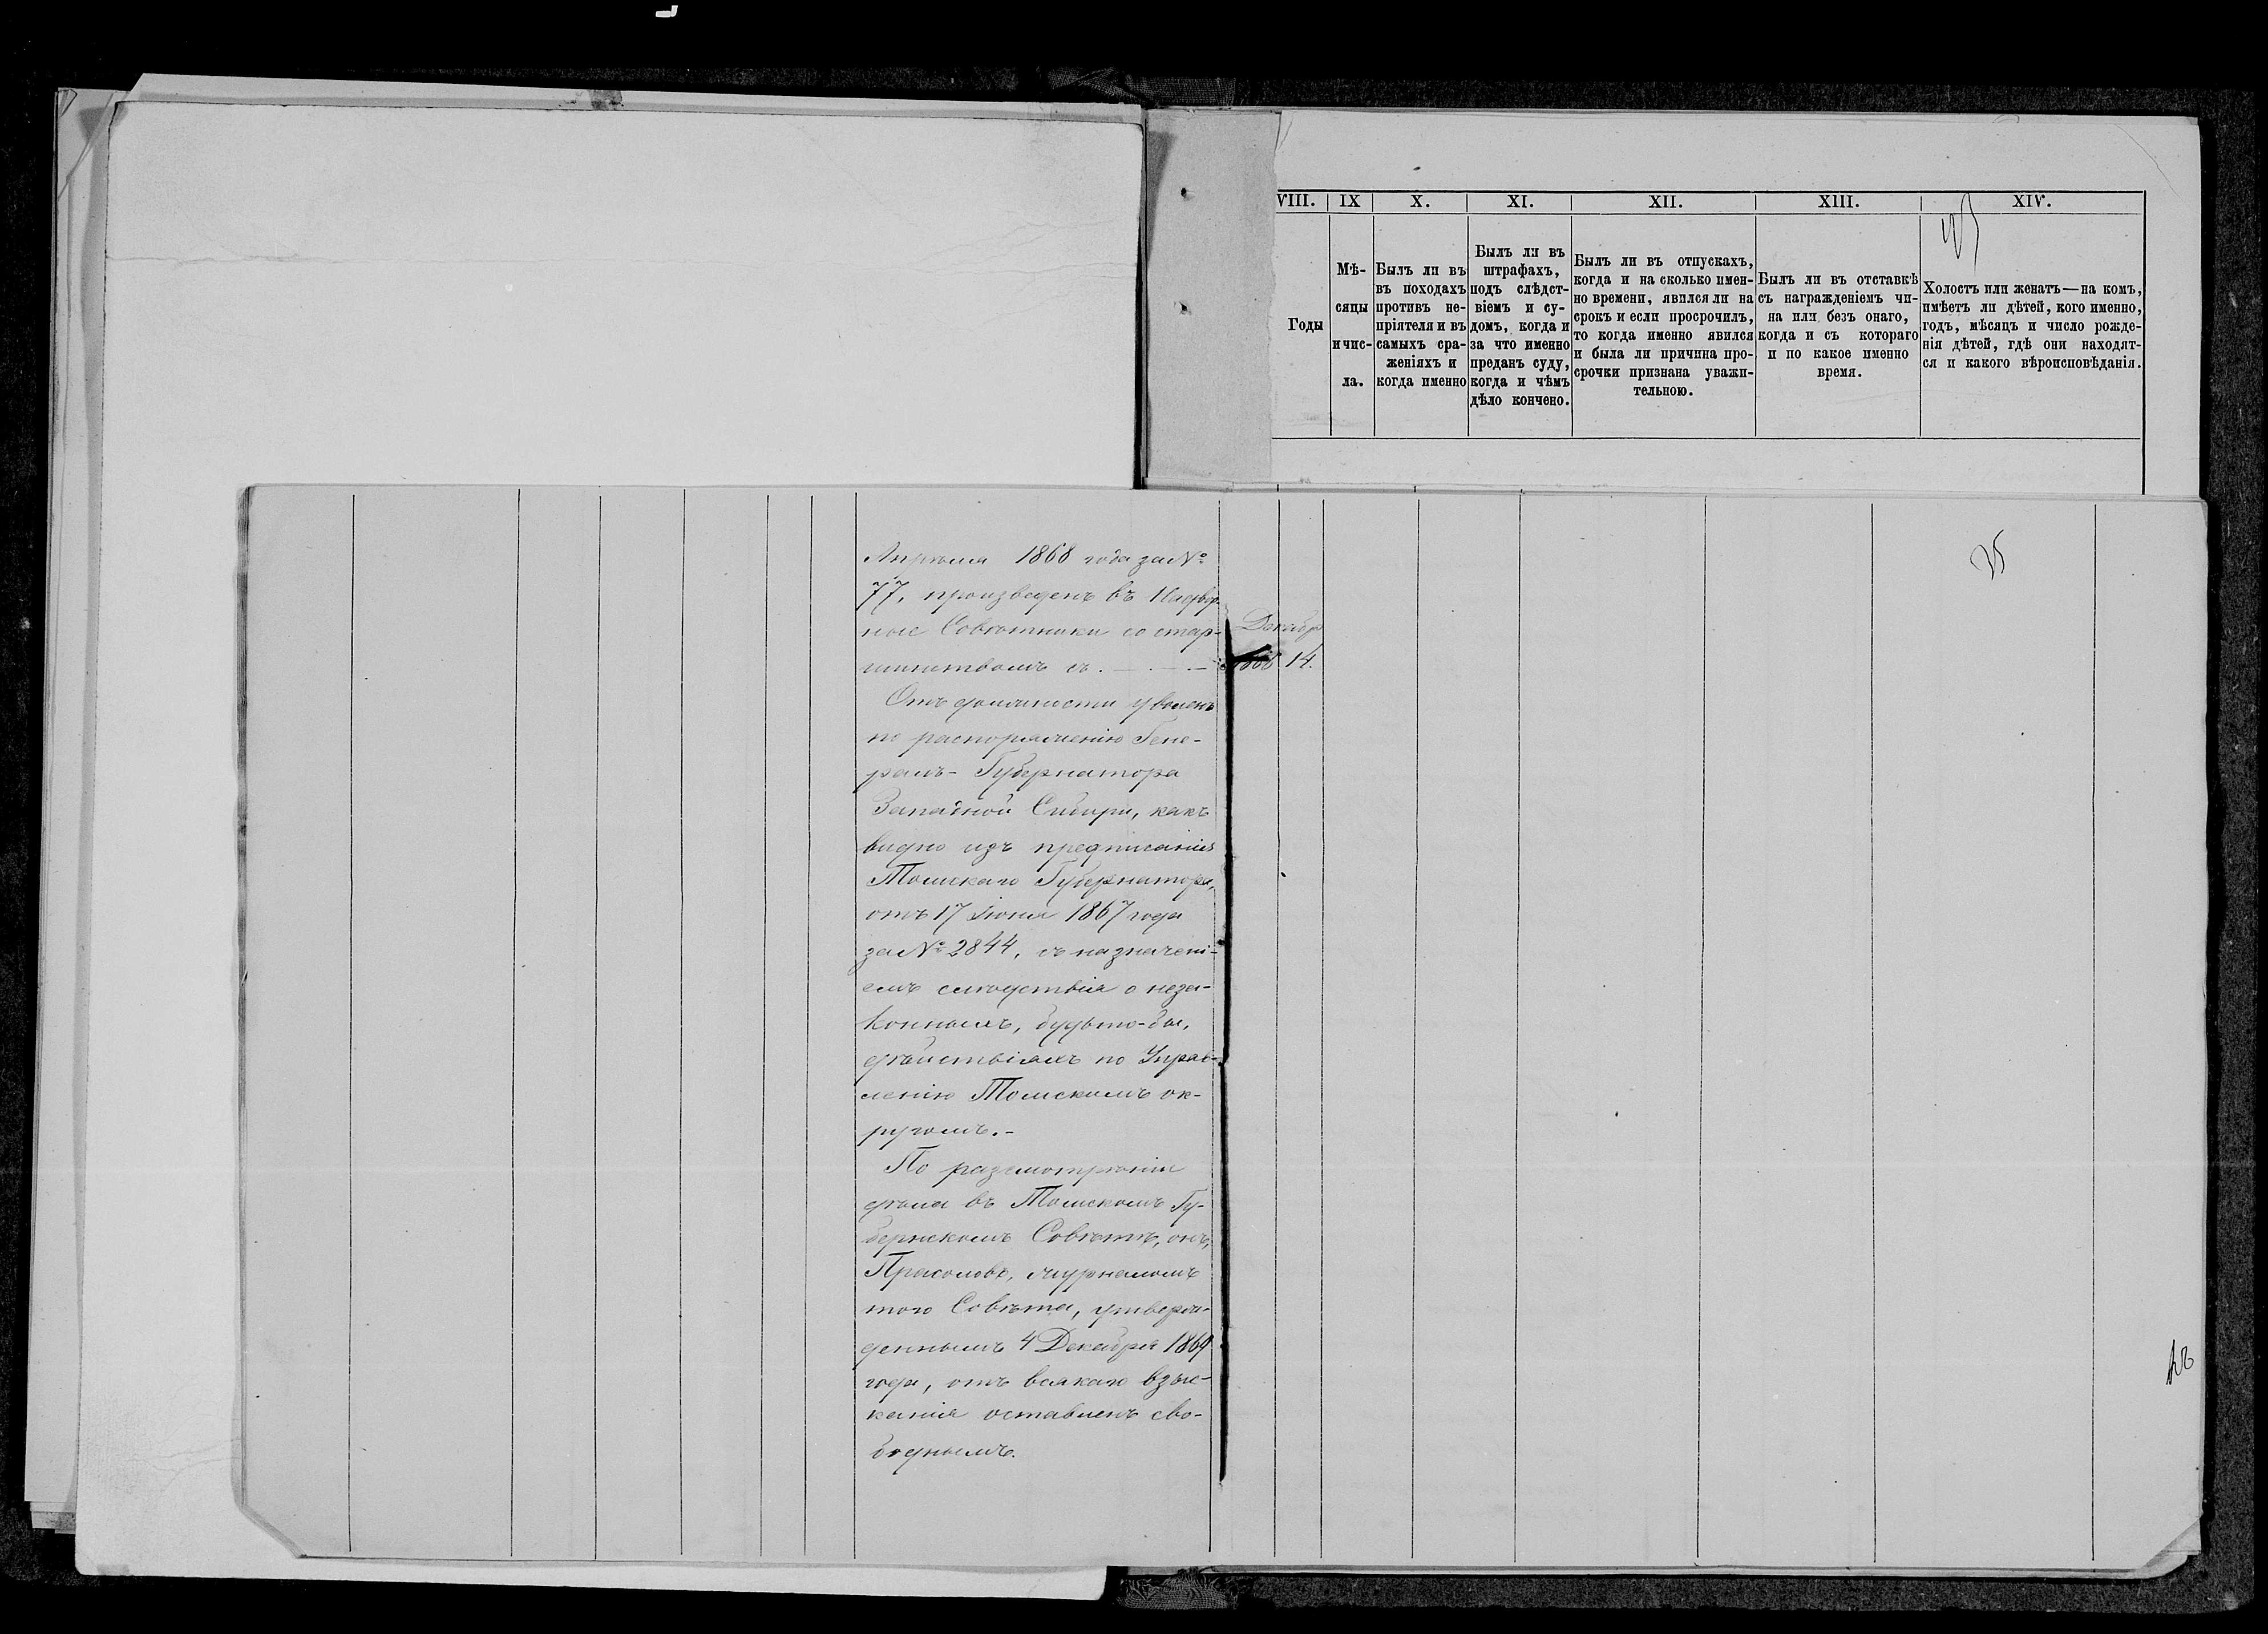 VIII. IX X. XI. XII. XIII. XIV.
Годы
Мѣ-
сяцы
и чис-
ла.
Былъ ли въ
въ походахъ
противъ не-
пріятеля и въ
самыхъ сра-
женіяхъ и
когда именно
Былъ ли въ
штрафахъ,
подъ слѣдст-
віемъ и су-
домъ, когда и
за что именно
преданъ суду,
когда и чѣмъ
дѣло кончено.
Былъ ли въ отпускахъ,
когда и на сколько имен-
но времени, явился ли на
срокъ и если просрочилъ,
то когда именно явился
и была ли причина про-
срочки признана уважи-
тельною.
Былъ ли въ отставкѣ
съ награжденіемъ чи-
на или безъ онаго,
когда и съ котораго
и по какое именно
время.
Холостъ или женатъ—на комъ,
имѣетъ ли дѣтей, кого именно,
годъ, мѣсяцъ и число рожде-
нія дѣтей, гдѣ они находят-
ся и какого вѣроисповѣданія.
Апрѣля 1868 года за №
77, произведенъ въ Надвор-
ные Совѣтники со стар-
шинствомъ съ . — . — . —
Декабр
14.
Отъ должности уволенъ
по распоряженію Гене-
ралъ-Губернатора
Западной Сибири, какъ
видно изъ предписанія
Томскаго Губернатора,
отъ 17 Іюня 1867 года
за № 2844, съ назначені-
емъ слѣдствія о неза-
конныхъ, будьто-бы,
дѣйствіяхъ по Управ-
ленію Томскимъ ок-
ругомъ.-
По разсмотрѣніи
дѣла въ Томскомъ Гу-
бернскомъ Совѣтѣ, онъ,
Прасоловъ, журналомъ
того Совѣта, утверж-
деннымъ 4 Декабря 1869
года, отъ всякаго взыс-
канія оставленъ сво-
боднымъ.